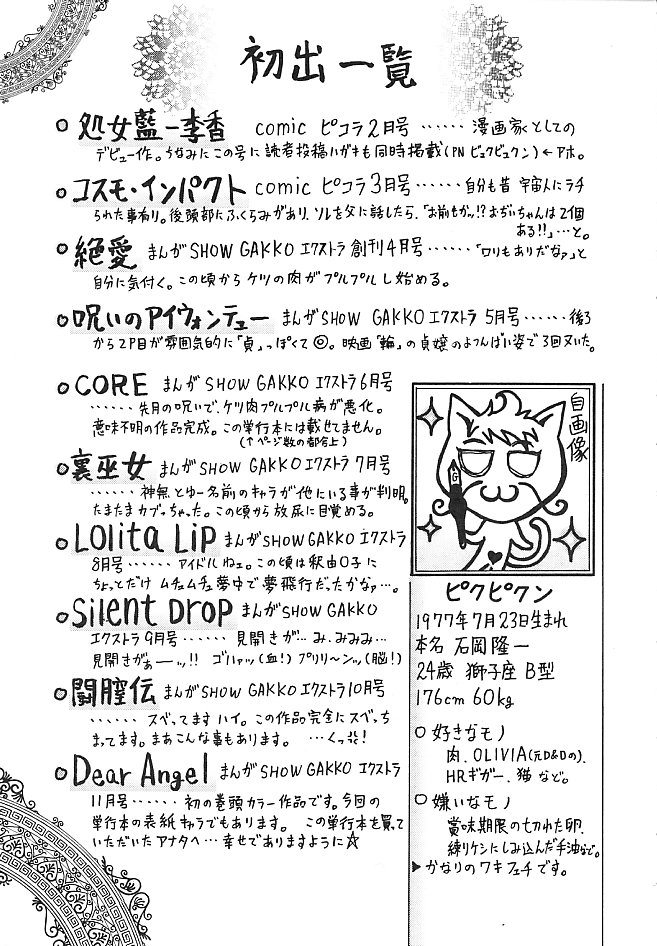 初出一覧
処女藍-李香 comic ピコラ2月号 ……漫画家としての
デビュー作。ちなみにこの号に読者投稿ハガキも同時掲載(PN ピュクピュクン)←アホ。
コスモ・インパクト comic ピコラ3月号……自分も昔 宇宙人にラチ
られた事有り。後頭部にふくらみがあり、ソレを父に話したら、「お前もかッ!?おぢいちゃんは2個
ある!!」…と。
絶愛 まんがSHOW GAKKO エクストラ 創刊4月号……「ロリもありだなァ」と
自分に気付く。この頃からケツの肉がプルプルし始める。
呪いのアイウォンテュー まんがSHOW GAKKO エクストラ 5月号……後ろ
から2P目が雰囲気的に「貞」っぽくて◎。映画「輪」の貞嬢のよつんばい姿で3回ヌいた。
CORE まんがSHOW GAKKO エクストラ6月号
……先月の呪いで、ケツ肉プルプル病が悪化。
意味不明の作品完成。この単行本には載せてません。
(↑ページ数の都合上)
裏巫女 まんがSHOW GAKKO エクストラ 7月号
……神無とゆー名前のキャラが他にいる事が判明。
たまたまカブっちゃった。この頃から放尿に目覚める。
Lolita Lip まんがSHOW GAKKO エクストラ
8月号……アイドルねェ。この頃は釈由〇子に
ちょっとだけ ムチュムチュ夢中で夢飛行だったかなァ…。
Silent Drop まんがSHOW GAKKO
エクストラ9月号……見開きが…み、みみみ…
見開きがぁーーッ!! ゴハァッ(血!)プリリ〜ンッ(脳!)
闘膣伝 まんがSHOW GAKKO エクストラ10月号
……スベってます ハイ。この作品完全にスベっち
まってます。まあこんな事もあります。 …くっ!
Dear Angel まんがSHOW GAKKO エクストラ
11月号……初の巻頭カラー作品です。今回の
単行本の表紙キャラでもあります。 この単行本を買って
いただいたアナタへ…幸せでありますように☆
自画像
G
ピクピクン
1977年7月23日生まれ
本名 石岡隆一
24歳 獅子座 B型
176cm 60kg
○好きなモノ
肉、OLIVIA(元D&Dの)、
HRギガー、猫 など。
○嫌いなモノ
賞味期限の切れた卵、
練りケシにしみ込んだ手油など。
▶かなりのワキフェチです。